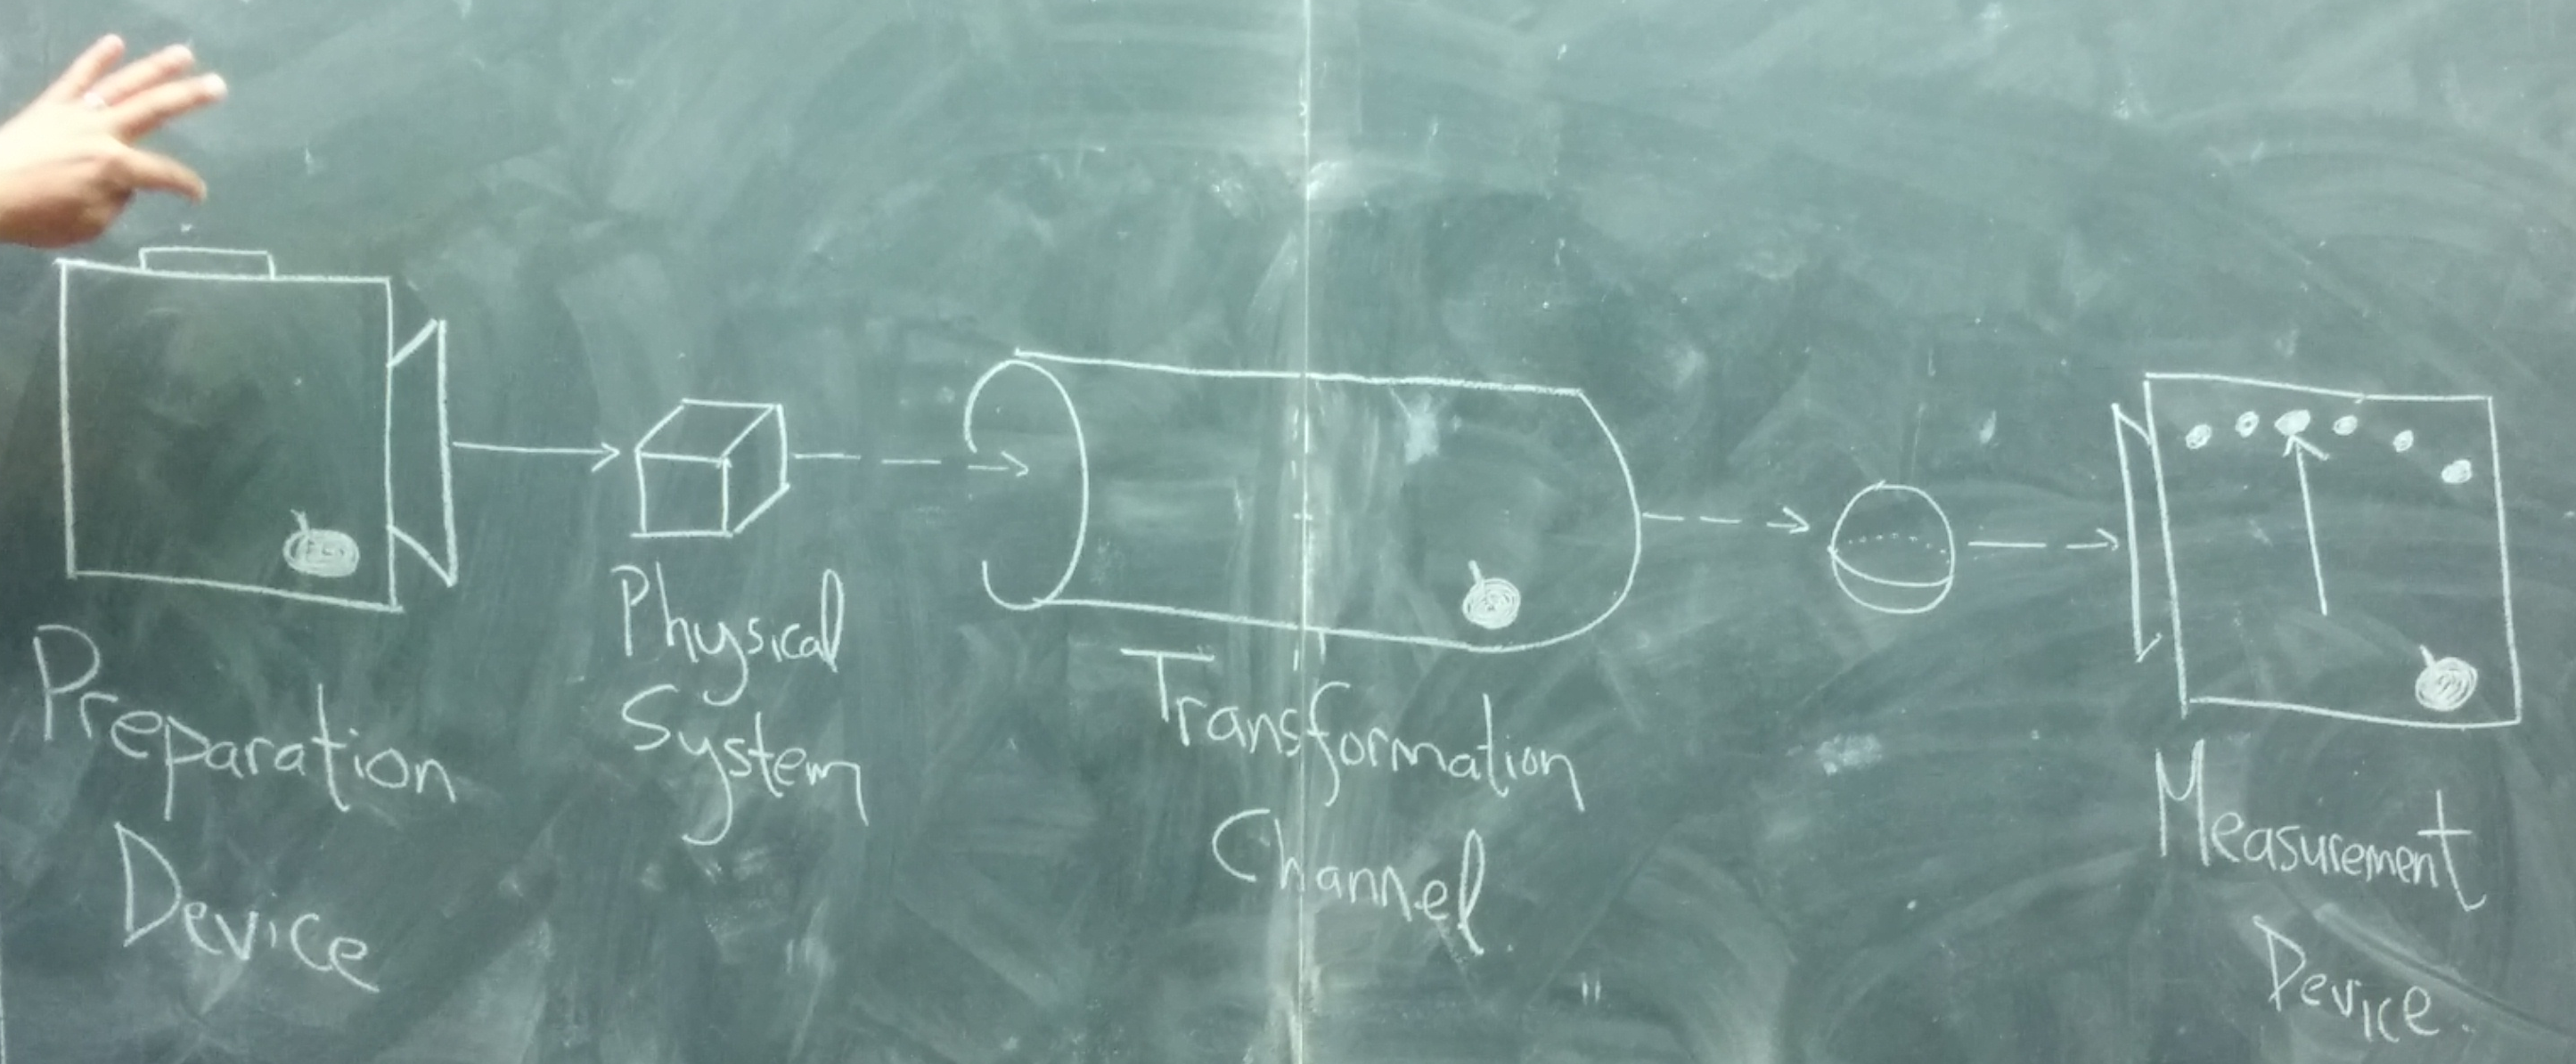 Preparation
Device
Physical
System
Transformation
Channel
Measurement
Device